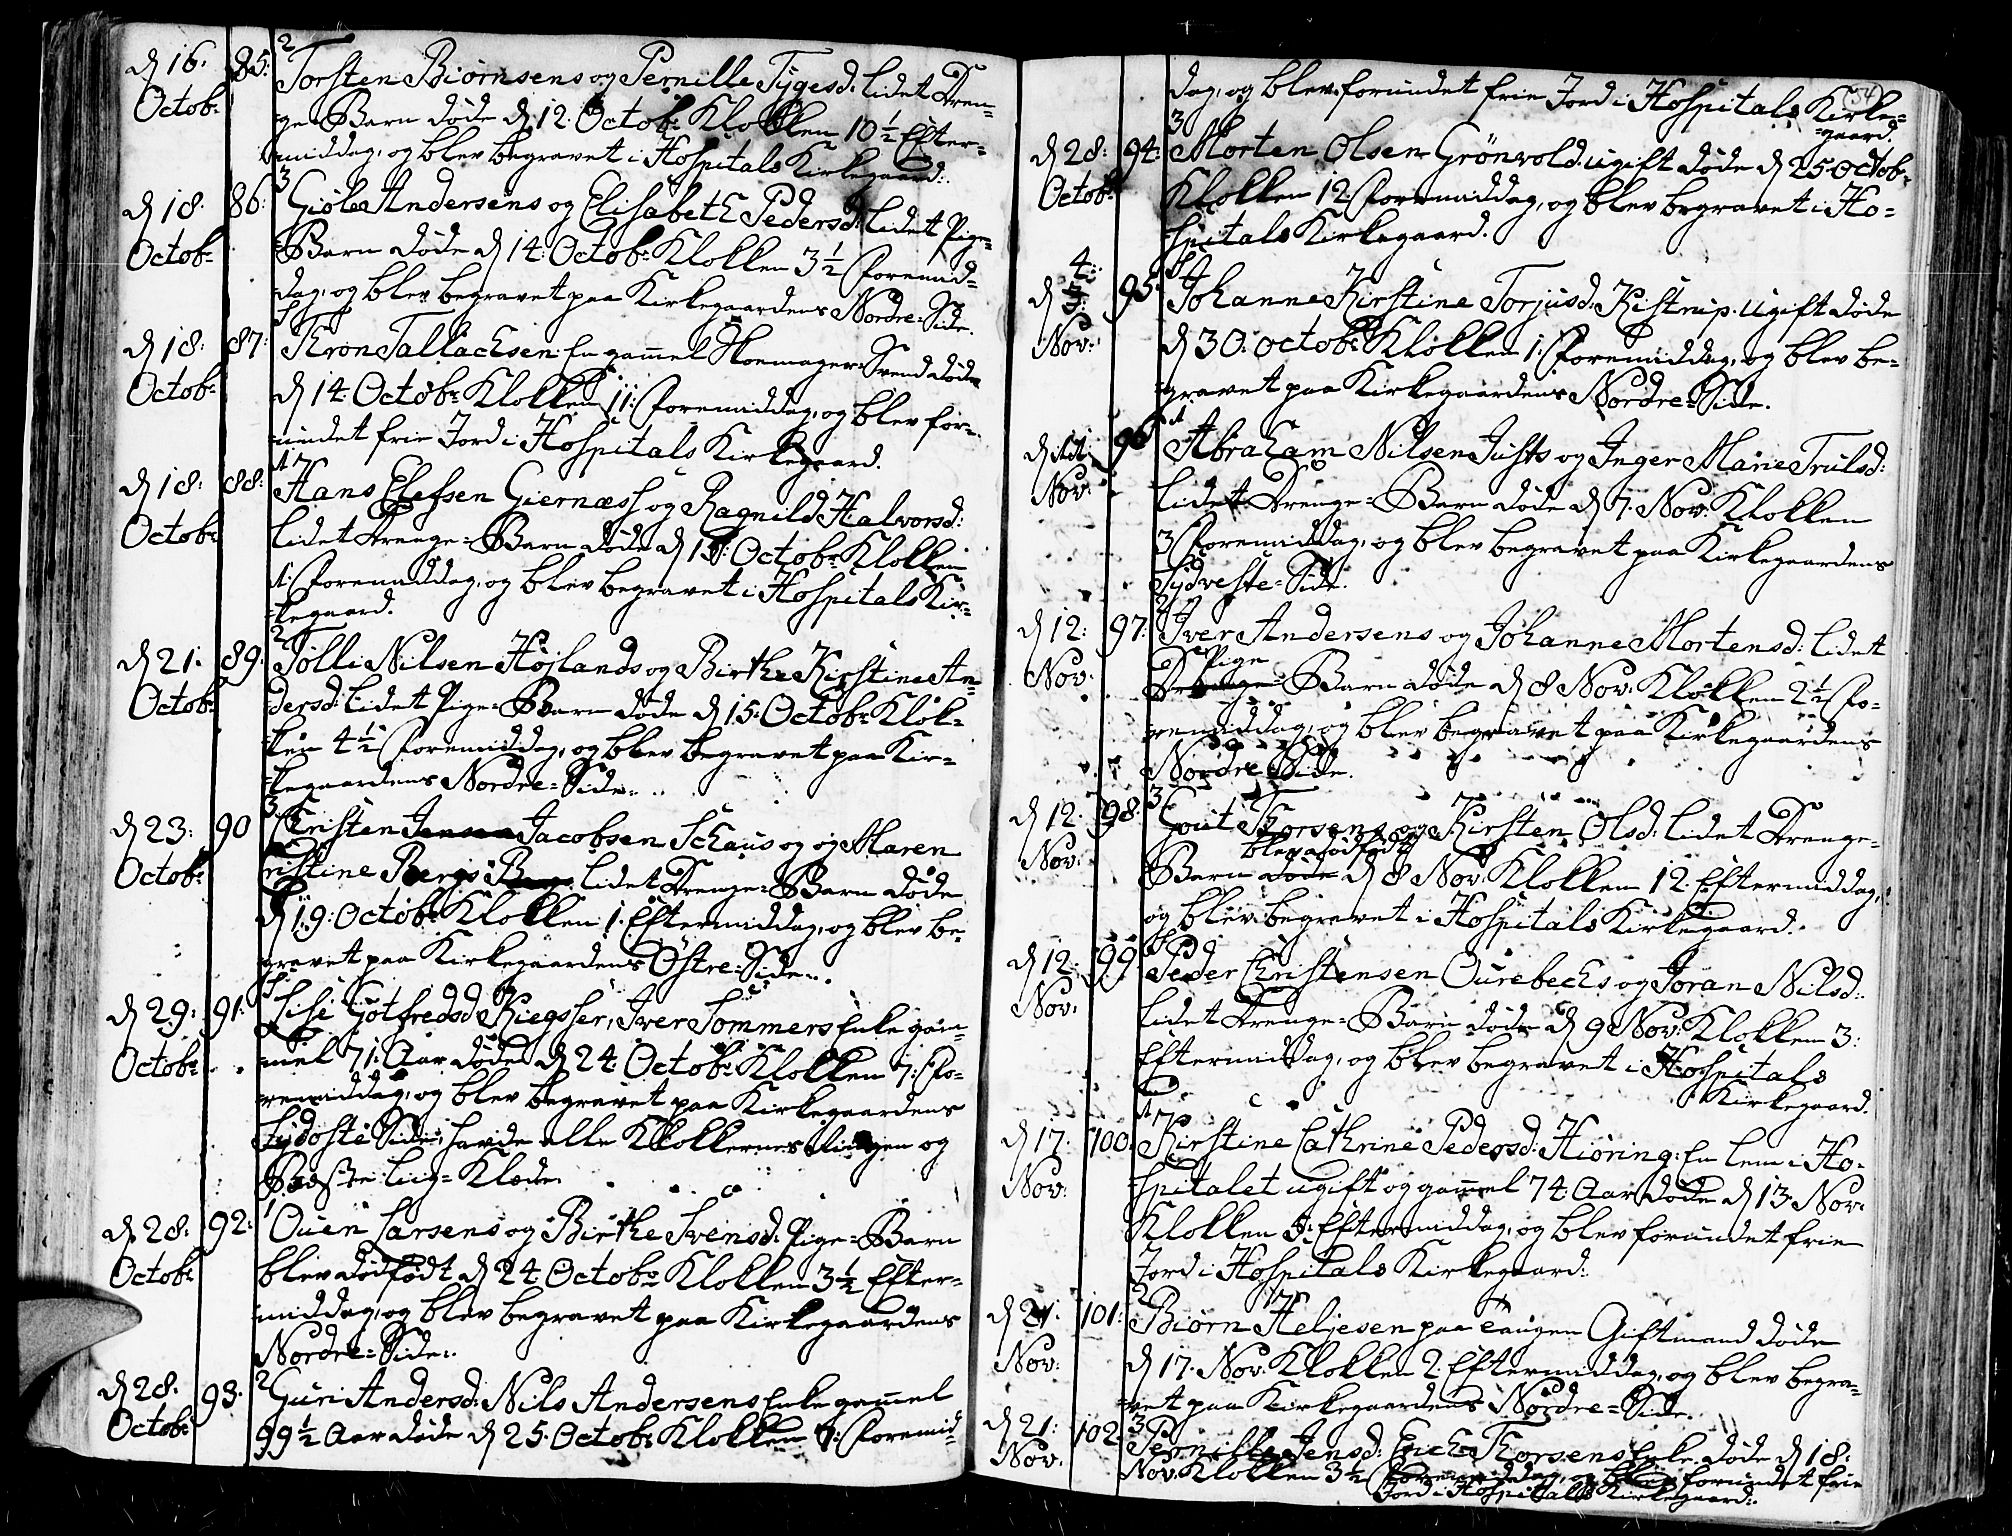 d 16. 85. 2 Torsten Biörnsens og Pernille Tygesd: lidet Dren-
Octobr ge-Barn døde d 12. Octobr Klokken 10½ Efter-
middag, og blev begravet i Hospitals Kirkegaard:
d 18. 86. 3 Giøle Andersens og Elisabeth Pedersd: lidet Pige-
Octobr Barn døde d 14. Octobr Klokken 3½ Foremid-
dag, og blev begravet paa Kirkegaardens Nordre-Side.
d 18: 87: Thron Tallachsen. En gammel Skoemager-Svend døde
Octobr d 14. Octobr Klokken 11: Foremiddag, og blev for-
undet frie Jord i Hospitals Kirkegaard.
d 18: 88: 1 Hans Elefsen Giernæs og Ragnild Halvorsd:
Octobr lidet Drenge-Barn døde d 15: Octobr Klokken
1: Foremiddag, og blev begravet i Hospitals Kir-
kegaard.
d 21. 89. 2 Tølli Nilsen Højlands og Birthe Kirstine An-
Octobr dersd: lidet Pige-Barn døde d 15: Octobr Klok-
ken 4½ Foremiddag, og blev begravet paa Kir-
kegaardens Nordre-Side.
d 23: 90 3. Christen Jensen Jacobsen Schaus og og Maren
Octobr ristine Bergs lidet Drenge-Barn døde
d 19: Octobr Klokken 1. Eftermiddag, og blev be-
gravet paa Kirkegaardens Østre-Side.
d 29: 91. Lise Gotfredsd Kiegsser, Iver Sommers Enke gam-
Octobr mel 71: Aar døde d 24. Octobr Klokken 7: Fo-
remiddag, og blev begravet paa Kirkegaardens
Sydoste Side, havde alle Klokkernes Ringen og
Bedste Liig-Klæde.
d. 28. 92: 1 Ouen Larsens og Birthe Svensd: Pige-Barn
Octobr blev dødfødt d 24. Octobr Klokken 3½ Efter-
middag, og blev begravet paa Kirkegaardens
Nordre-Side.
d 28. 93. 2 Guri Andersd: Nils Andersens Enke gammel
Octobr 99½ Aar døde d 25. Octobr Klokken Foremid-
34
dag, og blev forundet frie Jord i Hospitals Kirke-
gaard.
d 28: 94: 3 Morten Olsen Grönvold: ugift døde d 25 Octobr
Octobr Klokken 12 Foremiddag, og blev begravet i Ho-
spitals Kirkegaard.
4:
d 95. Johanne Kirstine Torjusd: Kistrup. ugift døde
Nov: d 30. octobr Klokken 1: Foremiddag, og blev be-
gravet paa Kirkegaardens Nordre-Side.
d 11: 96 1 Abraham Nilsen Justs og Inger Marie Trulsd:
Nov: lidet Drenge-Barn døde d 7. Nov: Klokken
3 Foremiddag, og blev begravet paa Kirkegaardens
Sydveste-Side.
d 12: 97: 2 Iver Andersens og Johanne Mortensd: lidet
Pige
Nov: Drenge-Barn døde d 8 Nov: Klokken 2½ Fo-
remiddag, og blev begravet paa Kirkegaardens
Nordre Side.
d 12. 98. 3 Gout Thorsens og Kirsten Olsd: lidet Drenge-
blev dødfødt
Nov: Barn døde d 8 Nov: Klokken 12. Eftermiddag,
og blev begravet i Hospitals Kirkegaard.
d 12: 99 Peder Christensen Ourebechs og Joran Nilsd:
Nov: lidet Drenge-Barn døde d 9 Nov: Klokken 3:
Eftermiddag, og blev begravet i Hospitals
Kirkegaard.
d 17. 100. 1 Kirstine Cathrine Pedersd: Hiöring: En lem i Ho-
Nov: spitalet ugift og gammel 74 Aar døde d 13 Nov:
Klokken Eftermiddag, og blev forundet frie
Jord i Hospitals Kirkegaard:
d 21. 101: 2 Biörn Heljesen paa Tangen Giftmand døde
Nov: d 17. Nov: Klokken 2. Eftermiddag, og blev begra-
vet paa Kirkegaardens Nordre-Side.
d 21: 102 3 Pernille Jensd: Erich Thorsens Enke døde d 18:
Nov. Nov: Klokken 3½ Foremiddag, og blev forundet frie
Jord i Hospitals Kirkegaard: